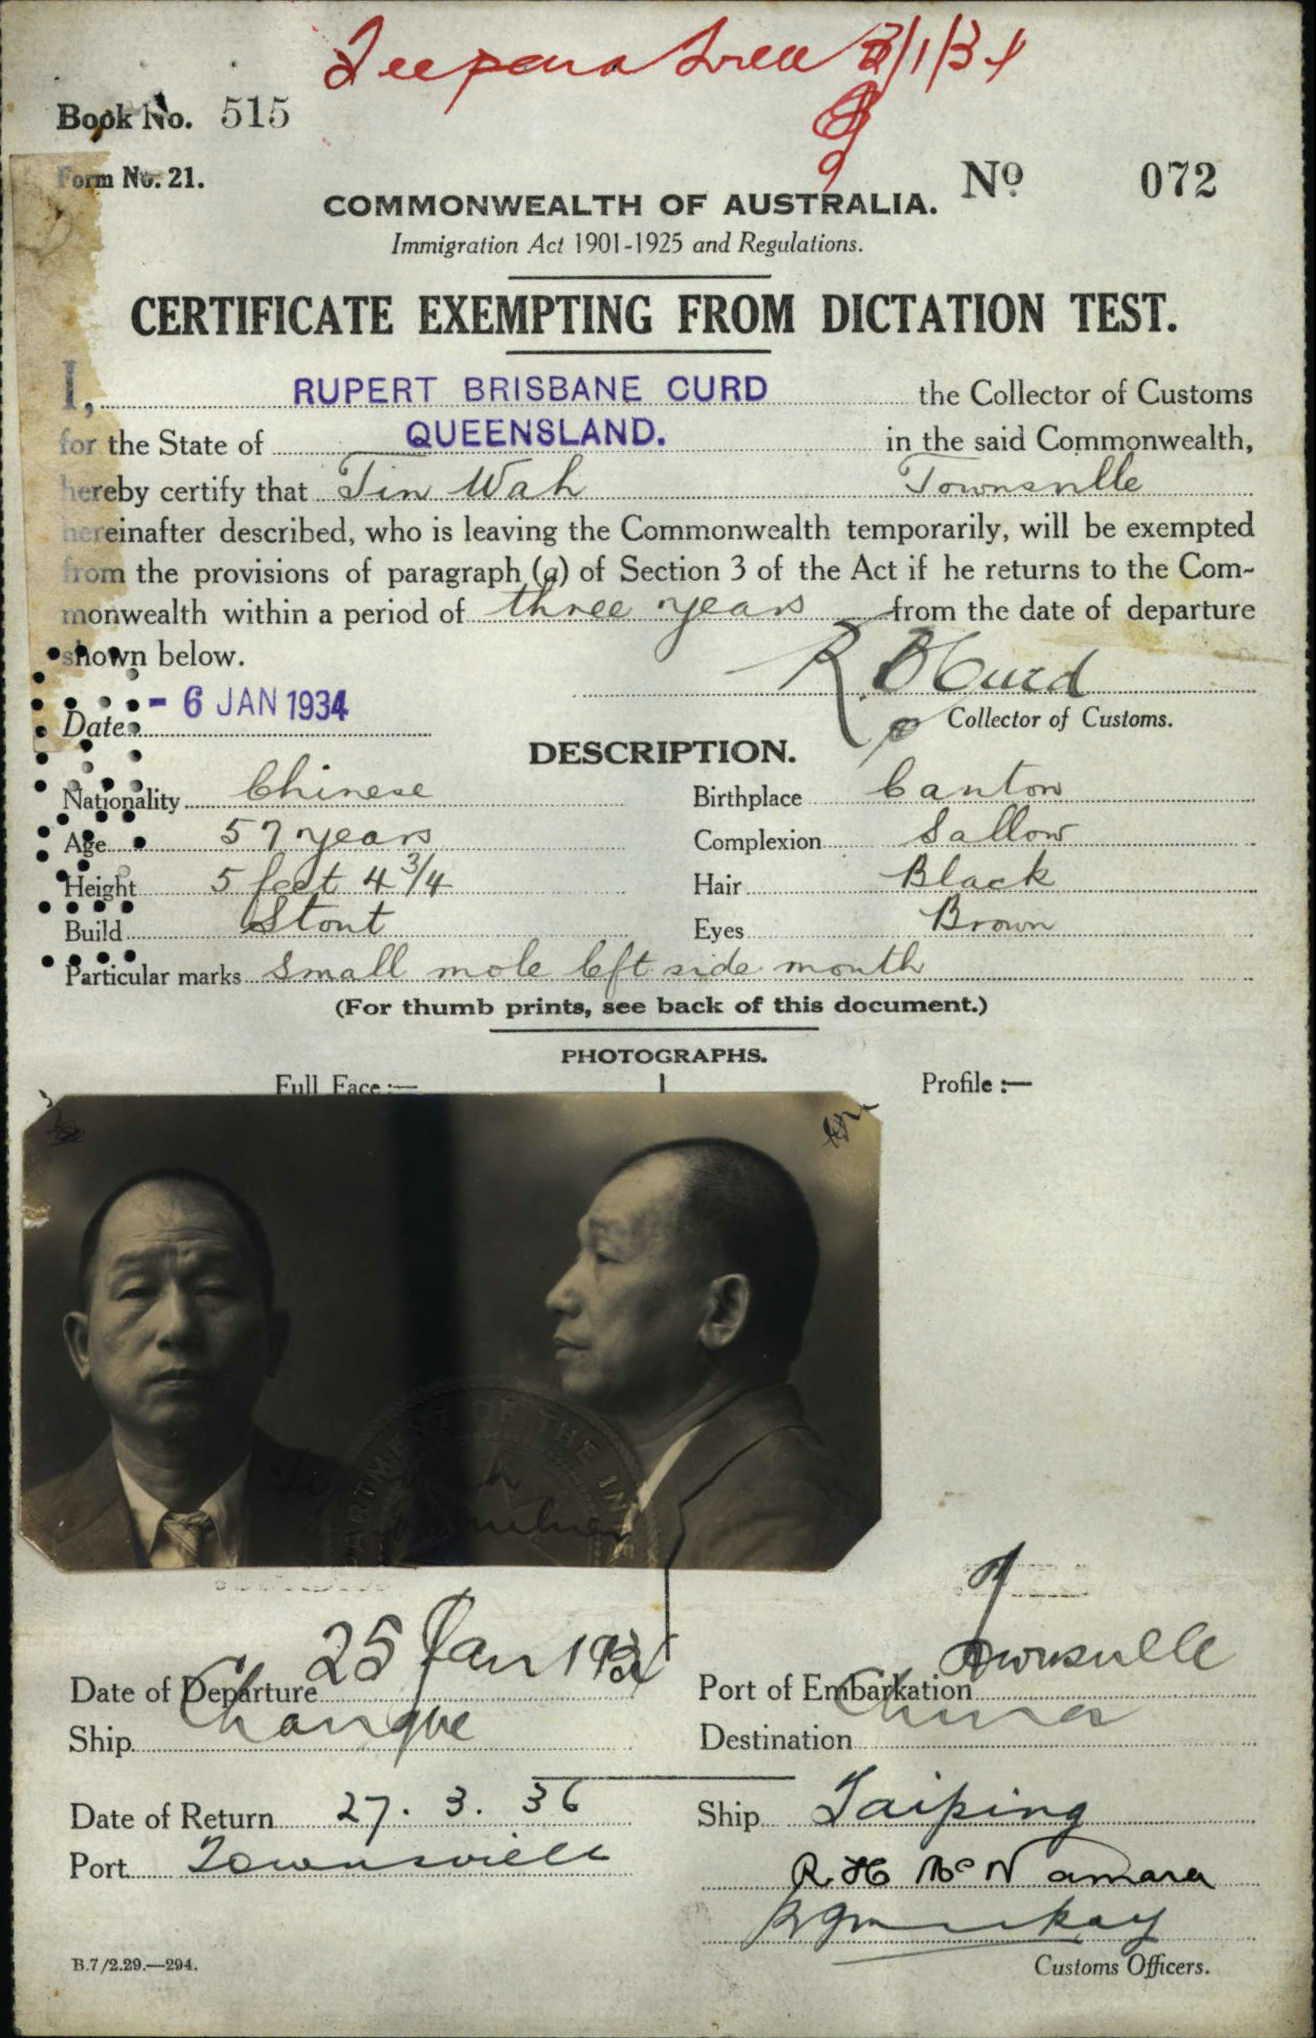 3/1/34
Book No. 515
Form No. 21.
No 072
COMMONWEALTH OF AUSTRALIA.
Immigration Act 1901-1925 and Regulations.
CERTIFICATE EXEMPTING FROM DICTATION TEST.
I, RUPERT BRISBANE CURD the Collector of Customs
for the State of QUEENSLAND. in the said Commonwealth,
hereby certify that Tin Wah Townsville
hereinafter described, who is leaving the Commonwealth temporarily, will be exempted
from the provisions of paragraph (a) of Section 3 of the Act if he returns to the Com-
monwealth within a period of three years from the date of departure
shown below.
R B Curd
Date - 6 JAN 1934
Collector of Customs.
DESCRIPTION.
Nationality Chinese Birthplace Canton
Age 57 years Complexion Sallow
Height 5 feet 4 3/4 Hair Black
Build Stout Eyes Brown
Particular marks Small mole left side mouth
(For thumb prints, see back of this document.)
PHOTOGRAPHS.
Full Face :— Profile :—
DEPARTMENT OF THE IN
Date of Departure 25 Jan 1934 Port of Embarkation Townsville
Ship Changte Destination China
Date of Return 27. 3. 36 Ship Taiping
Port Townsville R. H McNamara
Customs Officers.
B.7/2.29.—294.